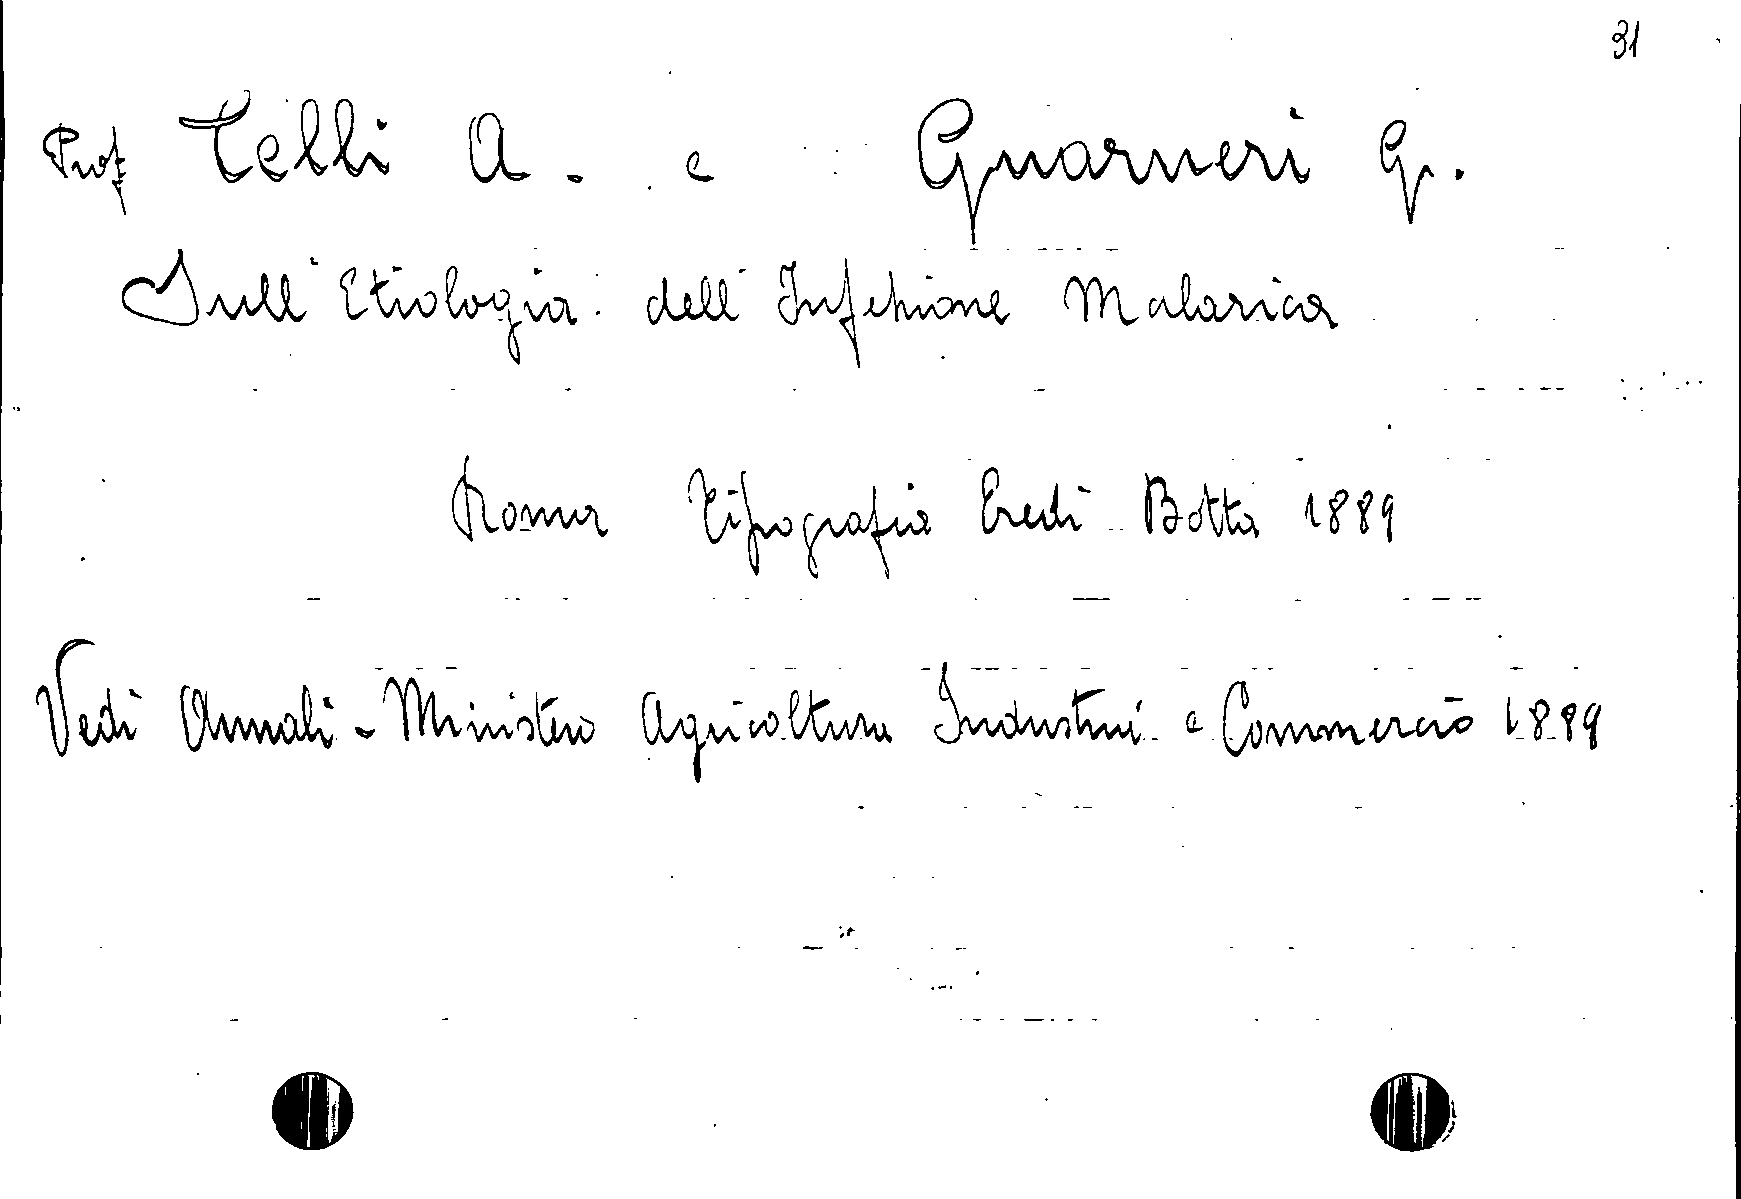 31
Prof Celli A. e Guarneri G.
Sull'Etiologia dell'Infezione Malarica
Roma Tipografia Eredi Botta 1889
Vedi Annali - Ministero Agricoltura Industria e Commercio 1889